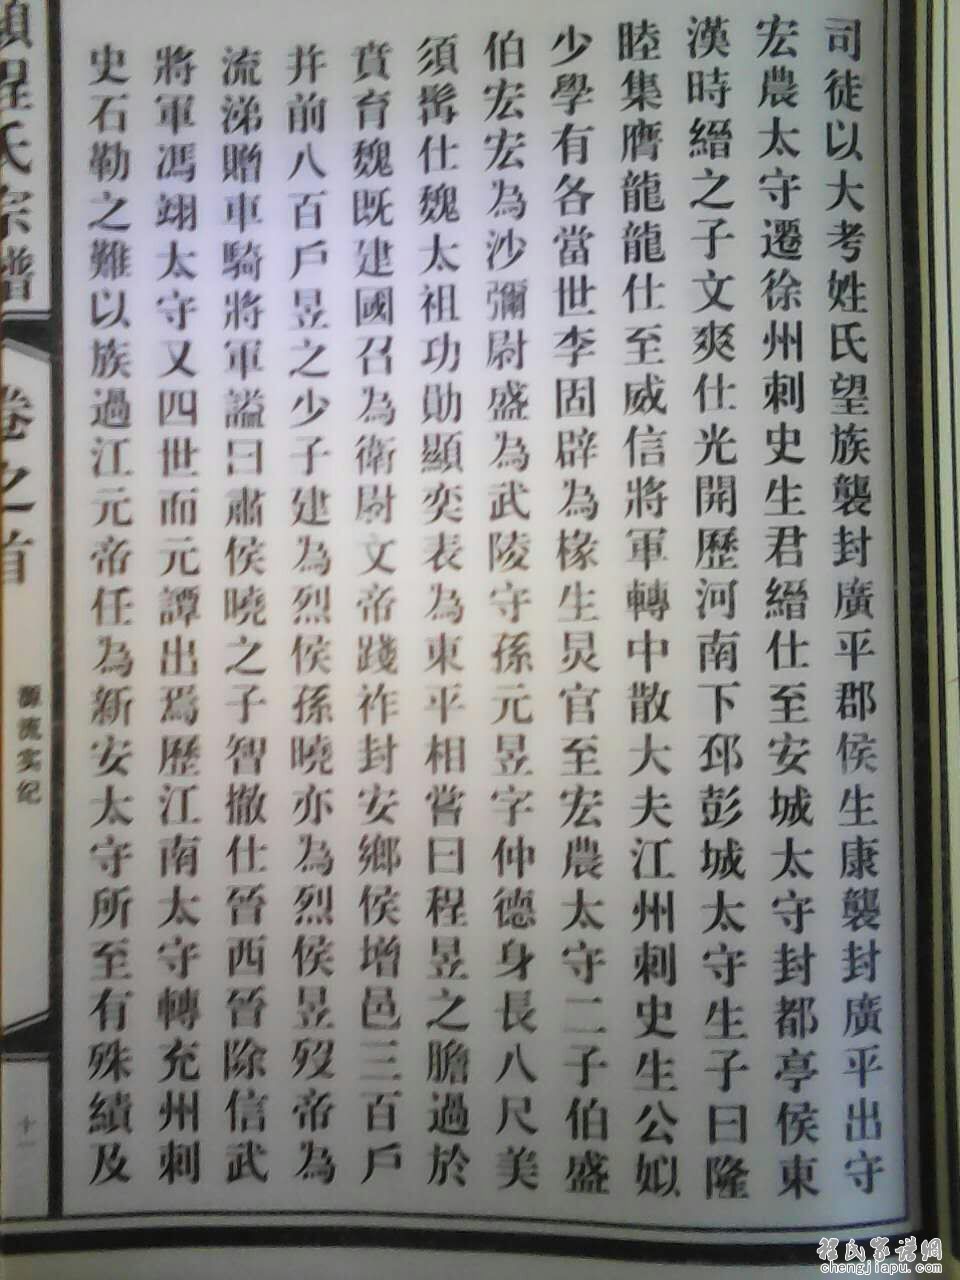 司徒以大考姓氏望族襲封廣平郡侯生康襲封廣平出守
宏農太守遷徐州刺史生君縉仕至安城太守封都亭侯東
漢時縉之子文爽仕光開歷河南下邳彭城太守生子曰隆
睦集膺龍龍仕至威信將軍轉中散大夫江州刺史生公姒
少學有各當世李固辟為椽生炅官至宏農太守二子伯盛
伯宏宏為沙彌尉盛為武陵守孫元昱字仲德身長八尺美
須髯仕魏太祖功勛顯奕表為東平相嘗曰程昱之膽過於
賁育魏既建國召為衛尉文帝踐祚封安鄉侯增邑三百戶
并前八百戶昱之少子建為烈侯孫曉亦為烈侯昱歿帝為
流涕贈車騎將軍謚曰肅侯曉之子智撤仕晉西晉除信武
將軍馮翊太守又四世而元譚出焉歷江南太守轉充州刺
史石勒之難以族過江元帝任為新安太守所至有殊績及
程氏宗譜
卷之首
源流实纪
十一
程氏家谱網
chengjiapu.com